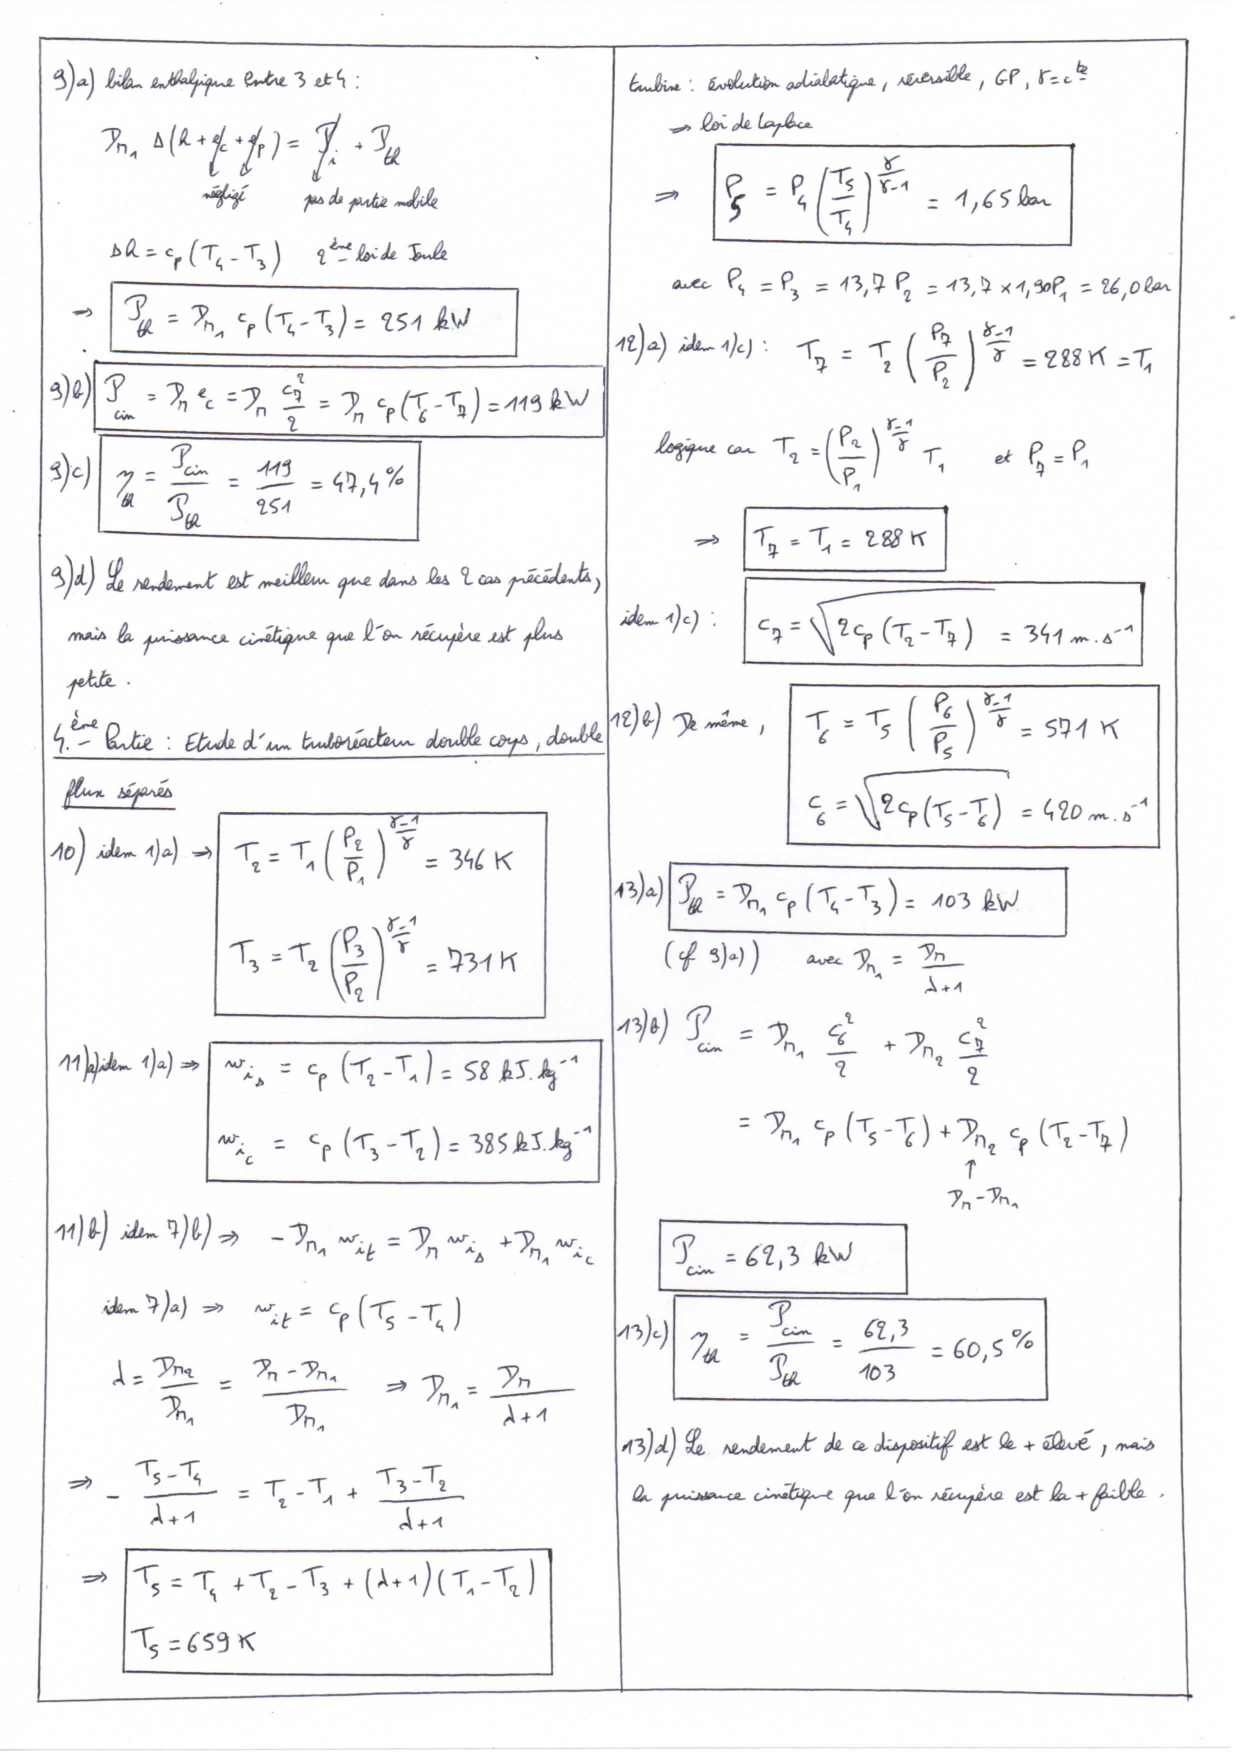 9)a) bilan enthalpique entre 3 et 4 :
D_m1 Δ(h + e_c + e_p) = P_i + P_th
négligé pas de partie mobile
Δh = c_p (T_4 - T_3) 2ème loi de Joule
⇒ P_th = D_m1 c_p (T_4 - T_3) = 251 kW
9)b) P_cin = D_m e_c = D_m c_7²/2 = D_m c_p (T_6 - T_7) = 119 kW
9)c) η_th = P_cin/P_th = 119/251 = 47,4 %
9)d) Le rendement est meilleur que dans les 2 cas précédents,
mais la puissance cinétique que l'on récupère est plus
petite.
4.ème Partie : Etude d'un turboréacteur double corps, double
flux séparés
10) idem 1)a) ⇒ T_2 = T_1 (P_2/P_1)^((γ-1)/γ) = 346 K
T_3 = T_2 (P_3/P_2)^((γ-1)/γ) = 731 K
11)a) idem 1)a) ⇒ w_is = c_p (T_2 - T_1) = 58 kJ.kg⁻¹
w_ic = c_p (T_3 - T_2) = 385 kJ.kg⁻¹
11)b) idem 7)b) ⇒ - D_m1 w_it = D_m w_is + D_m1 w_ic
idem 7)a) ⇒ w_it = c_p (T_5 - T_4)
λ = D_m2/D_m1 = (D_m - D_m1)/D_m1 ⇒ D_m1 = D_m/(λ+1)
⇒ - (T_5 - T_4)/(λ+1) = T_2 - T_1 + (T_3 - T_2)/(λ+1)
⇒ T_5 = T_4 + T_2 - T_3 + (λ+1)(T_1 - T_2)
T_5 = 659 K
turbine : évolution adiabatique, réversible, GP, γ = cte
⇒ loi de Laplace
⇒ P_5 = P_4 (T_5/T_4)^(γ/(γ-1)) = 1,65 bar
avec P_4 = P_3 = 13,7 P_2 = 13,7 × 1,90 P_1 = 26,0 bar
12)a) idem 1)c) : T_7 = T_2 (P_7/P_2)^((γ-1)/γ) = 288 K = T_1
logique car T_2 = (P_2/P_1)^((γ-1)/γ) T_1 et P_7 = P_1
⇒ T_7 = T_1 = 288 K
idem 1)c) : c_7 = √(2c_p (T_2 - T_7)) = 341 m.s⁻¹
12)b) De même, T_6 = T_5 (P_6/P_5)^((γ-1)/γ) = 571 K
c_6 = √(2c_p (T_5 - T_6)) = 420 m.s⁻¹
13)a) P_th = D_m1 c_p (T_4 - T_3) = 103 kW
(cf 9)a)) avec D_m1 = D_m/(λ+1)
13)b) P_cin = D_m1 c_6²/2 + D_m2 c_7²/2
= D_m1 c_p (T_5 - T_6) + D_m2 c_p (T_2 - T_7)
↑
D_m - D_m1
P_cin = 62,3 kW
13)c) η_th = P_cin/P_th = 62,3/103 = 60,5 %
13)d) Le rendement de ce dispositif est le + élevé, mais
la puissance cinétique que l'on récupère est la + faible.